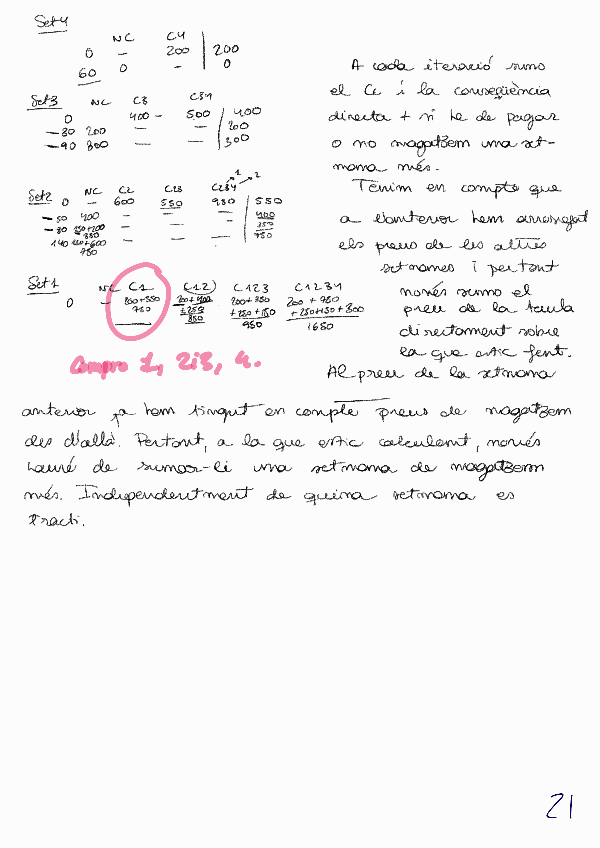 Set 4
NC C4
0 – 200 200
60 0 – 0
Set 3 NC C3 C34
0 400 – 500 400
– 30 200 — — 200
– 90 300 — — 300
Set 2 NC C2 C23 C234 → 1 → 2
0 – 600 550 980 550
– 50 400 – – – 400
– 80 – – – 350
140 – – – 750
780
Set 1 NC C1 (C12) C123 C1234
0 – 200+550 200+400 200+350 200 + 750
750 +250 +250+150 +250+150+300
850 950 1650
Compro 1, 2i3, 4.
A cada iteració sumo
el Ce i la conseqüència
directa + si he de pagar
o no magatzem una set-
mana més.
Tenim en compte que
a l'anterior hem arrossegat
els preus de les altres
setmanes i pertant
només sumo el
preu de la taula
directament sobre
la que estic fent.
Al preu de la setmana
anterior ja hem tingut en compte preus de magatzem
des d'allà. Pertant, a la que estic calculant, només
hauré de sumar-li una setmana de magatzem
més. Independentment de quina setmana es
tracti.
21